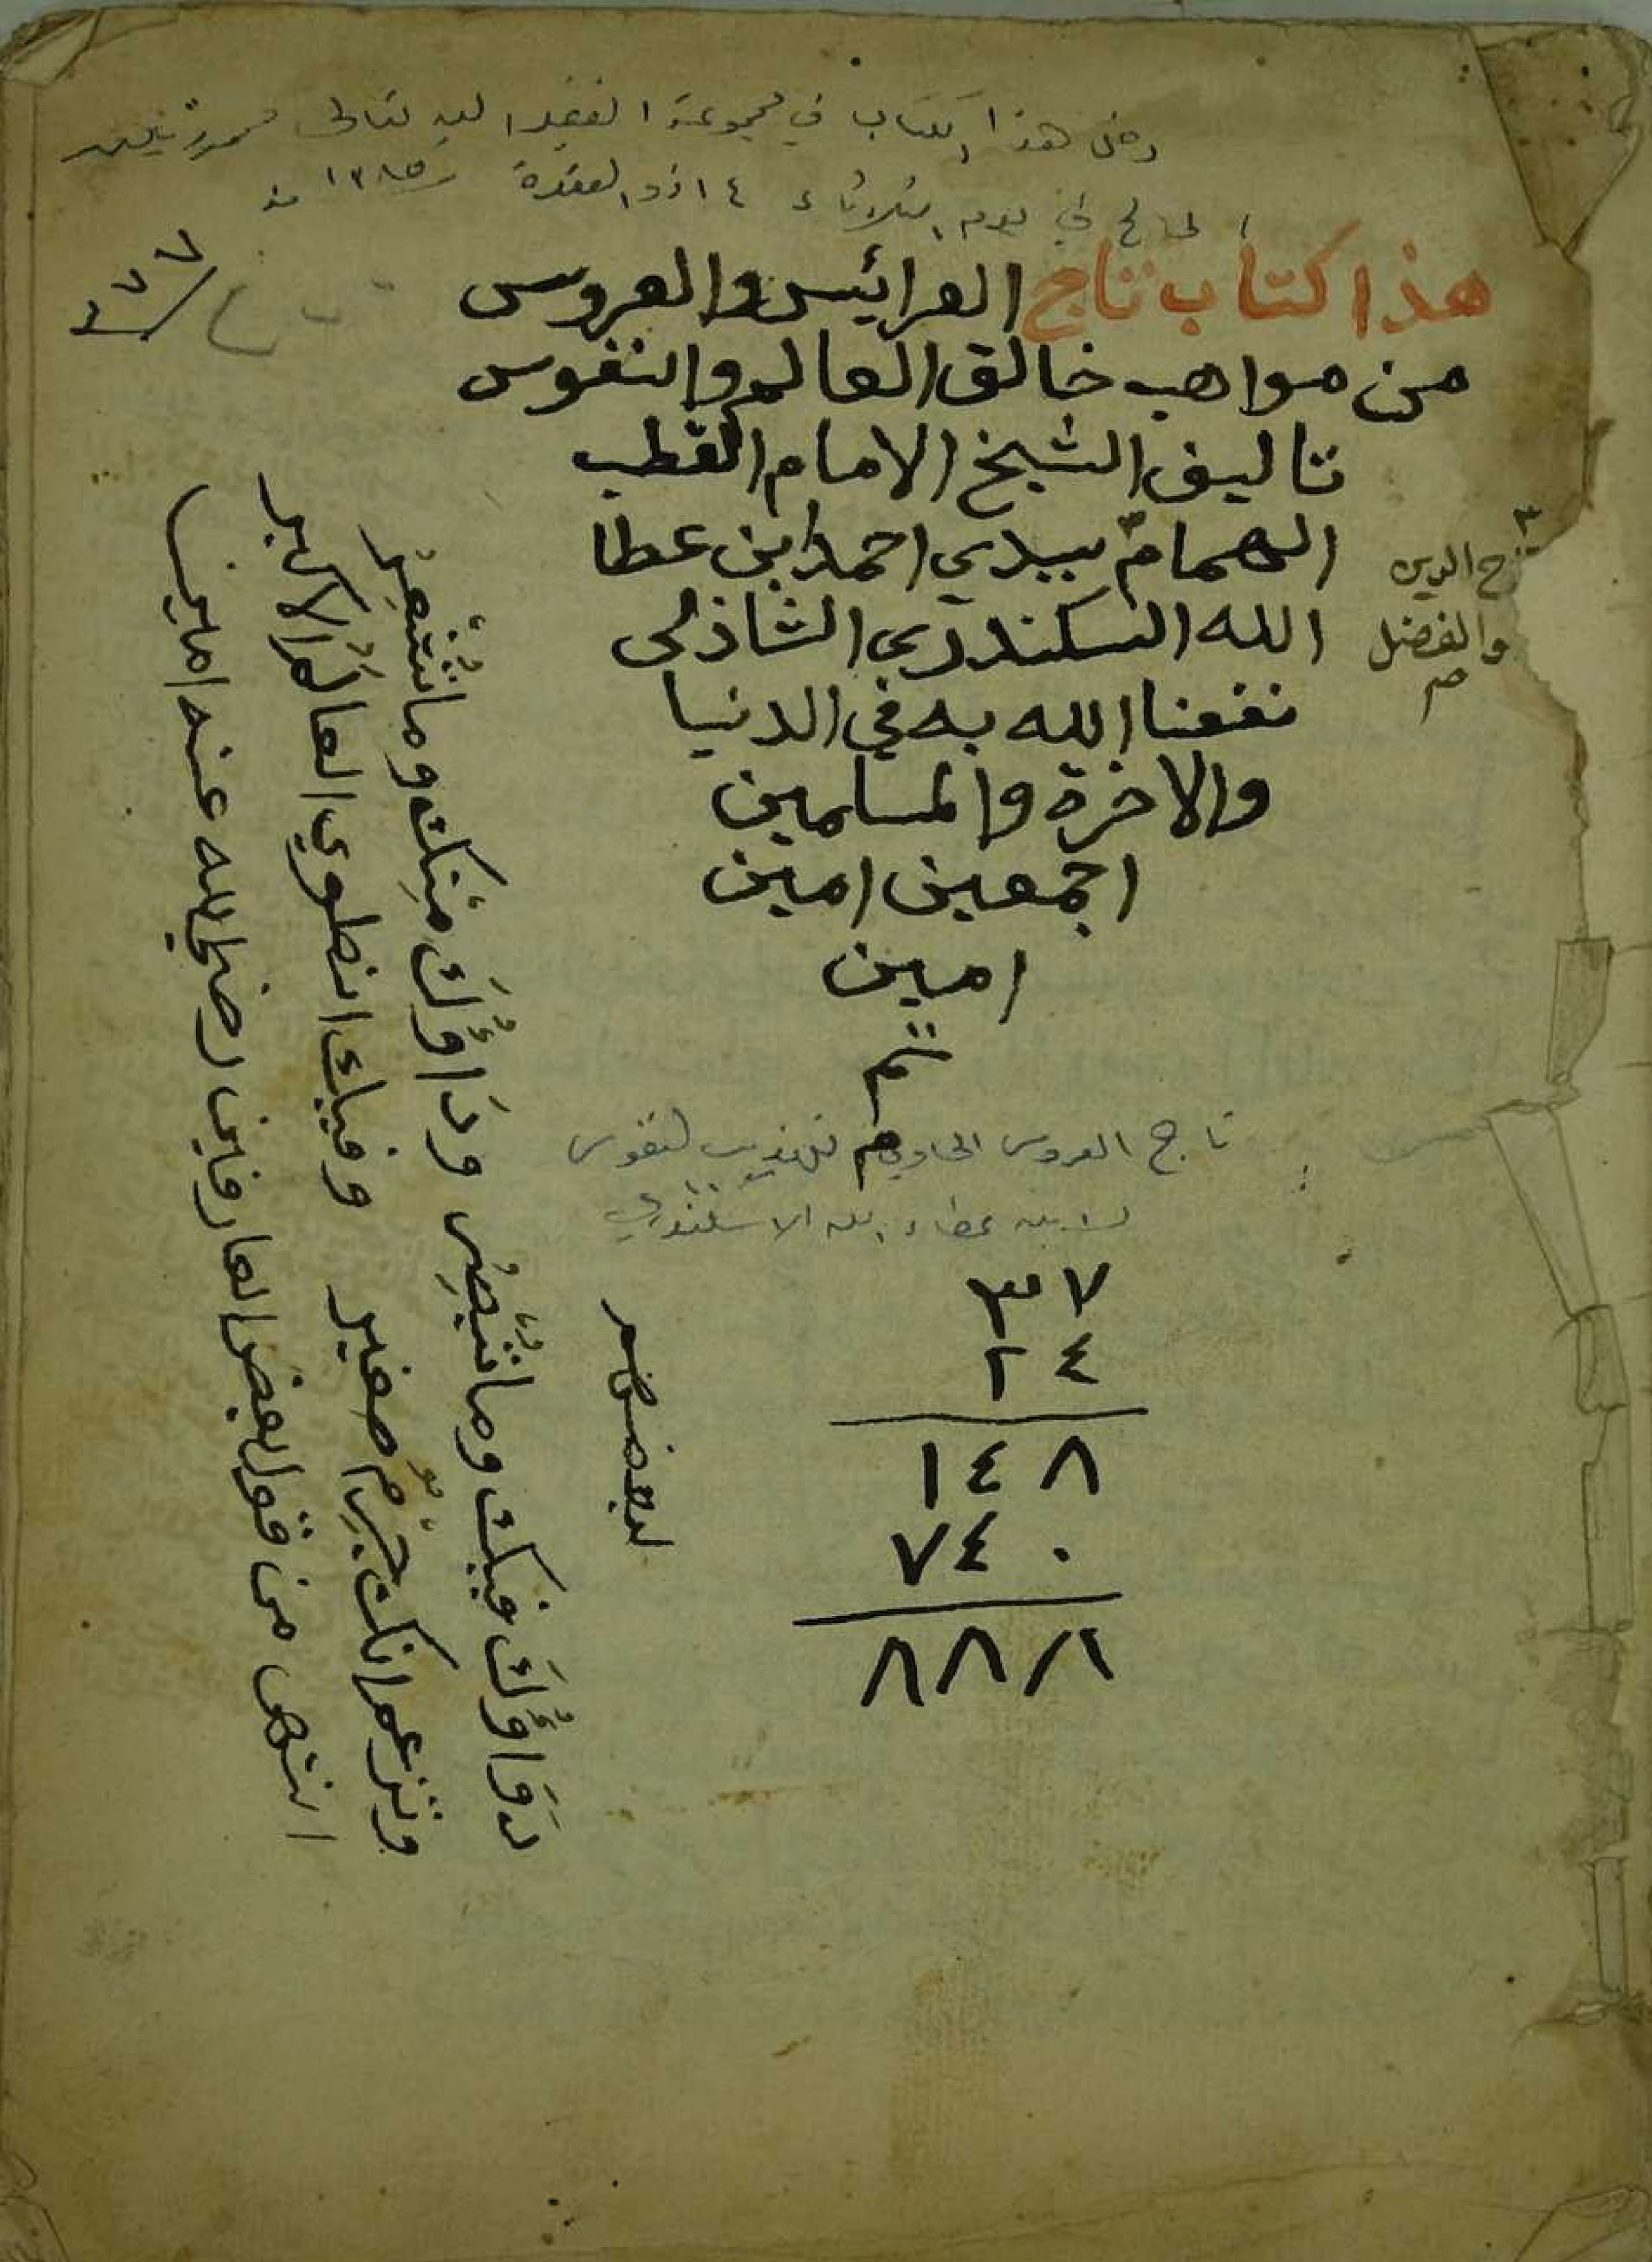 دخل هذا الكتاب في مجموعة الفقير اليه تعالى محمود
في يوم الثلاثاء ١٤ ذو القعدة
هذا كتاب تاج العرائيس والعروس
من مواهب خالق العالم والنفوس
تاليف الشيخ الامام القطب
الهمام سيدي احمد ابن عطا
تاج الدين
الله السكندري الشاذلى
والفضل
نفعنا الله به في الدنيا
والاخرة والمسلمين
اجمعين امين
امين
تم
تاج العروس الحاوي لتهذيب النفوس
لابن عطاء الله الاسكندري
٣٧
٢٤
١٤٨
٧٤٠
٨٨٨
لبعضهم
دَوَاؤُكَ فيك وما تُبْصِرُ ودَاؤُكَ مِنك وما تَشْعُرُ
وتزعم انك جِرْمٌ صغير وفيك انطوي العالَمُ الاكبر
انتهى من قول بعض العارفين رضي الله عنه امين